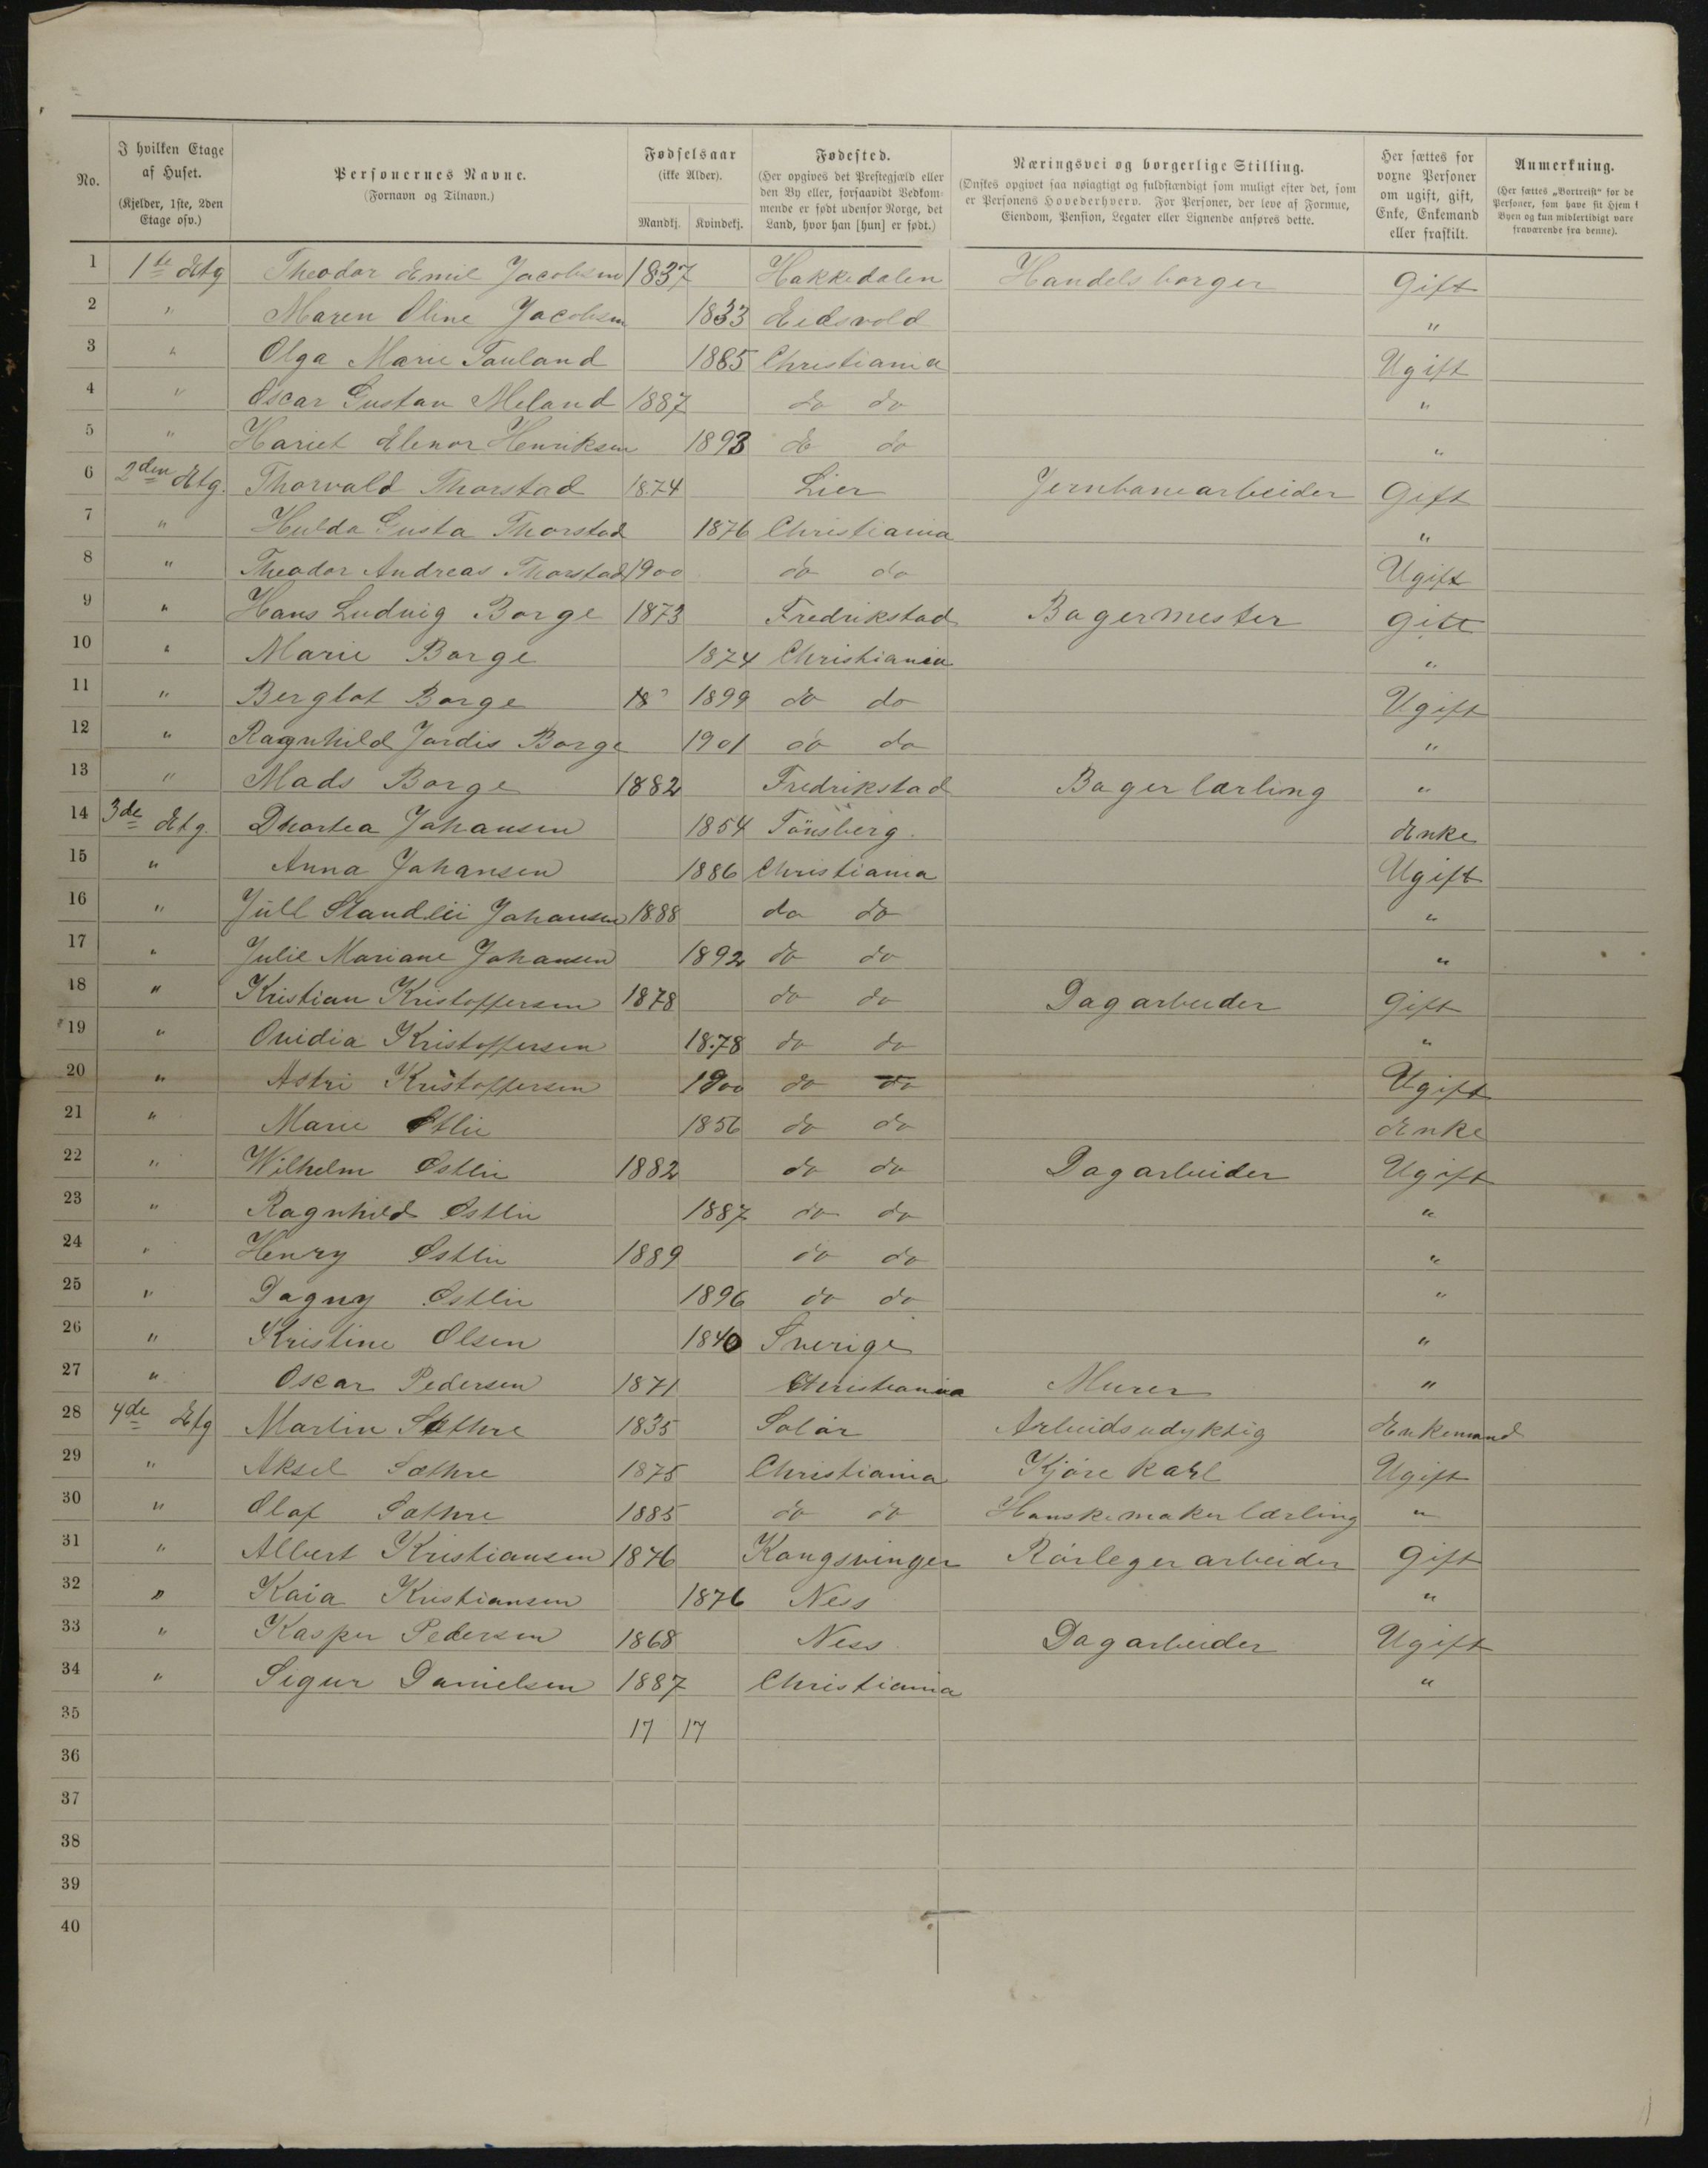 No. | I hvilken Etage af Huset. (Kjelder, 1ste, 2den Etage osv.) | Personernes Navne. (Fornavn og Tilnavn.) | Fødselsaar (ikke Alder). Mandkj. | Kvindekj. | Fødested. (Her opgives det Prestegjæld eller den By eller, forsaavidt Vedkommende er født udenfor Norge, det Land, hvor han [hun] er født.) | Næringsvei og borgerlige Stilling. (Ønskes opgivet saa nøiagtigt og fuldstændigt som muligt efter det, som er Personens Hovederhverv. For Personer, der leve af Formue, Eiendom, Pension, Legater eller Lignende anføres dette. | Her sættes for voxne Personer om ugift, gift, Enke, Enkemand eller fraskilt. | Anmerkning. (Her sættes „Bortreist" for de Personer, som have sit Hjem i Byen og kun midlertidigt vare fraværende fra denne).
1 1ste Etg Theodor Emil Jacobsen 1837 Hakkedalen Handelsborger Gift
2 " Maren Oline Jacobsen 1833 Eidsvold "
3 " Olga Marie Tauland 1885 Christiania Ugift
4 " Oscar Gustav Meland 1887 do do "
5 " Hariet Elenor Henriksen 1893 do do "
6 2den Etg. Thorvald Thorstad 1874 Lier Jernbanearbeider Gift
7 " Hulda Gusta Thorstad 1876 Christiania "
8 " Theodor Andreas Thorstad 1900 do do Ugift
9 " Hans Ludvig Borge 1873 Fredrikstad Bagermester gift
10 " Marie Borge 1874 Christiania "
11 " Berglot Borge 18 1899 do do Ugift
12 " Ragnhild Jordis Borge 1901 do do "
13 " Mads Borge 1882 Fredrikstad Bager lærling "
14 3de Etg. Dhortea Johansen 1854 Tönsberg. Enke
15 " Anna Johansen 1886 Christiania Ugift
16 " Jull Johansen 1888 do do "
17 " Julie Mariane Johansen 1892 do do "
18 " Kristian Kristoffersen 1878 do do Dagarbeider Gift
19 " Ovidia Kristoffersen 1878 do do "
20 " Astri Kristoffersen 1900 do do Ugift
21 " Marie Østlie 1856 do do Enke
22 " Wilhelm Østlie 1882 do do Dagarbeider Ugift
23 " Ragnhild Østlie 1887 do do "
24 " Henry Østlie 1889 do do "
25 " Dagny Østlie 1896 do do "
26 " Kristine Olsen 1840 Sverige "
27 " Oscar Pedersen 1871 Christiania Murer "
28 4de Etg Martin Sæthre 1835 Solør Arbeidsudyktig Enkemand
29 " Aksel Sæthre 1875 Christiania Kjøre Karl Ugift
30 " Olaf Sæthre 1885 do do Hanskemaker lærling "
31 " Albert Kristiansen 1876 Kongsvinger Rörleger arbeider Gift
32 " Kaia Kristiansen 1876 Ness "
33 " Kasper Pedersen 1868 Ness Dagarbeider Ugift
34 " Sigur Danielsen 1887 Christiania "
35 17 17
36
37
38
39
40